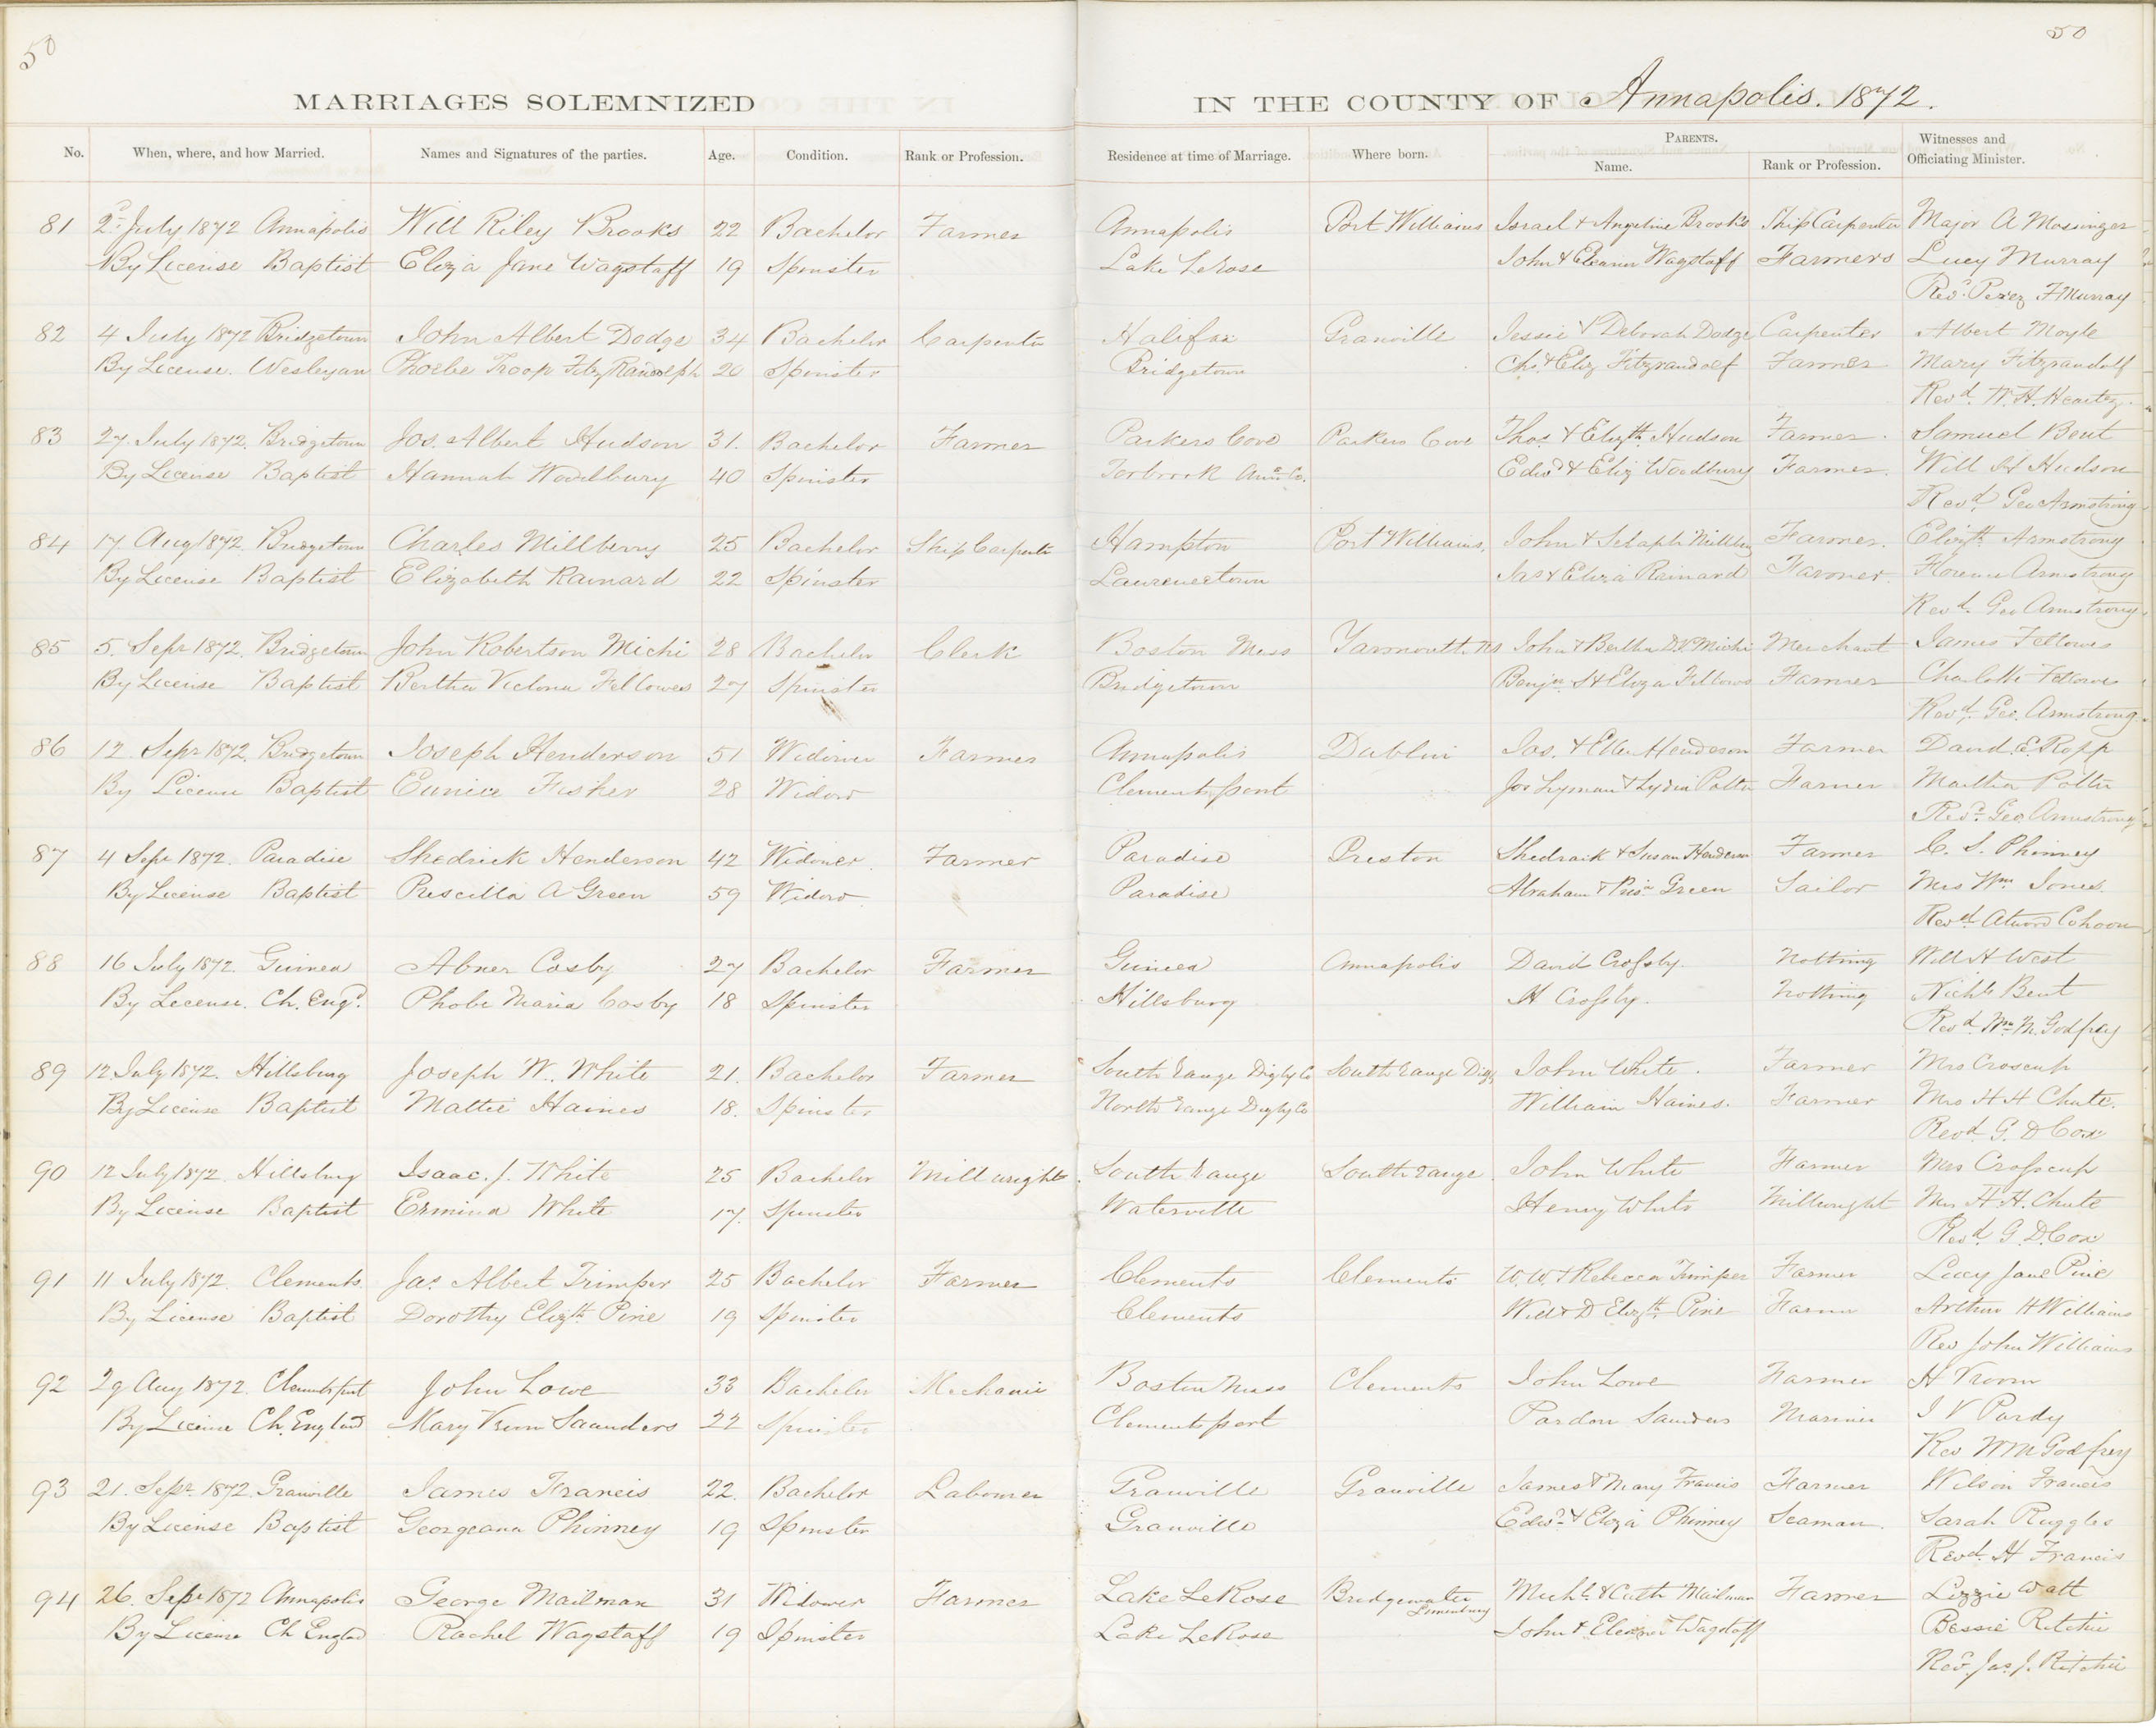 50
50
MARRIAGES SOLEMNIZED IN THE COUNTY OF Annapolis. 1872.
No. When, where, and how Married. Names and Signatures of the parties. Age. Condition. Rank or Profession. Residence at time of Marriage. Where born. PARENTS. Name. Rank or Profession. Witnesses and Officiating Minister.
81 2d July 1872 Annapolis Will Riley Brooks 22 Bachelor Farmer Annapolis Port Williams Israel & Angeline Brooks Ship Carpenter Major A Messinger
By License Baptist Eliza Jane Wagstaff 19 Spinster Lake LeRose John & Eleanor Wagstaff Farmers Lucy Murray
Revd. Perez F Murray
82 4 July 1872 Bridgetown John Albert Dodge 34 Bachelor Carpenter Halifax Granville Jessie & Deborah Dodge Carpenter Albert Moyle
By License. Wesleyan Phoebe Troop FitzRandolph 20 Spinster Bridgetown Chs. & Eliz Fitzrandolf Farmer Mary Fitzrandolf
Revd. W. H. Heartz.
83 27. July 1872. Bridgetown Jos. Albert Hudson 31. Bachelor Farmer Parkers Cove Parkers Cove Thos & Elizth Hudson Farmer. Samuel Bent
By License Baptist Hannah Woodbury 40 Spinster Torbrook Ann. Co. Edwd & Eliz Woodbury Farmer. Will H Hudson
Revd Geo Armstrong
84 17 Aug 1872. Bridgetown Charles Millberry 25 Bachelor Ship Carpenter Hampton Port Williams. John & Farmer. Elizth Armstrong
By License Baptist Elizabeth Rainard 22 Spinster Laurencetown Jas & Eliza Rainard Farmer. Florence Armstrong
Revd. Geo Armstrong.
85 5. Sepr 1872. Bridgetown John Robertson Michi 28 Bachelor Clerk Boston Mass Yarmouth NS John & Bertha Michi Merchant James Fellows
By License Baptist Bertha Victoria Fellowes 27 Spinster Bridgetown Benjn. S & Eliza Fellows Farmer Charlotte Fellows
Revd. Geo. Armstrong.
86 12. Sepr 1872. Bridgetown Joseph Henderson 51 Widower Farmer Annapolis Dublin Jas. & Ellen Henderson Farmer David. E. Ropp
By License Baptist Eunice Fisher 28 Widow Clementsport Jos Lyman & Lydia Potter Farmer Martha Potter
Revd. Geo Armstrong
87 4 Sepr 1872. Paradise Shedrick Henderson 42 Widower. Farmer Paradise Preston Shedraik & Susan Henderson Farmer C. S. Phinney
By License Baptist Priscilla A Green 59 Widow Paradise Abraham & Pris. Green Sailor Mrs Wm Jones.
Revd. Atwood Cohoon
88 16 July 1872. Guinea Abner Cosby 27 Bachelor Farmer Guinea Annapolis David Crossby. Nothing Will H West
By License. Ch. Engd. Phobe Maria Cosby 18 Spinster Hillsburg H Crossby. Nothing Nichs Bent
Revd. Wm. M. Godfrey
89 12 July 1872. Hillsburg Joseph W. White 21. Bachelor Farmer South range Digby Co South range Digby John White. Farmer Mrs Croscup
By License Baptist Mattie Haines 18. Spinster North range Digby Co William Haines. Farmer Mrs H H Chute.
Revd. G. D Cox
90 12 July 1872. Hillsburg Isaac. J. White 25 Bachelor Millwright South range South range. John White Farmer Mrs Crosscup
By License Baptist Ermina White 17. Spinster Waterville Henry White Millwright Mrs H. H. Chute
Revd. G. D. Cox
91 11 July 1872. Clements. Jas. Albert Trimper 25 Bachelor Farmer Clements Clements W. W. & Rebecca Trimper Farmer Lucy Jane Pine
By License Baptist Dorothy Elizth Pine 19 Spinster Clements Will & D Elizth. Pine Farmer Arthur H Williams
Rev John Williams
92 29 Aug 1872. Clementsport John Lowe 33 Bachelor Mechanic Boston Mass Clements John Lowe Farmer H Vroom
By License Ch. England Mary Saunders 22 Spinster Clementsport Pardon Saunders Mariner J V Purdy
Rev Wm M Godfrey
93 21. Sepr. 1872. Granville James Francis 22. Bachelor Labourer Granville Granville James & Mary Francis Farmer Wilson Francis
By License Baptist Georgeana Phinney 19 Spinster Granville Edwd. & Eliza Phinney Seaman. Sarah Ruggles
Revd. H Francis
94 26. Sepr 1872 Annapolis George Mailman 31 Widower Farmer Lake LeRose Bridgewater Lunenburg Michl. & Cath Mailman Farmer Lizzie Watt
By License Ch Englad Rachel Wagstaff 19 Spinster Lake LeRose John & Eleanor Wagstaff Bessie Ritchie
Revd. Jas. J. Ritchie